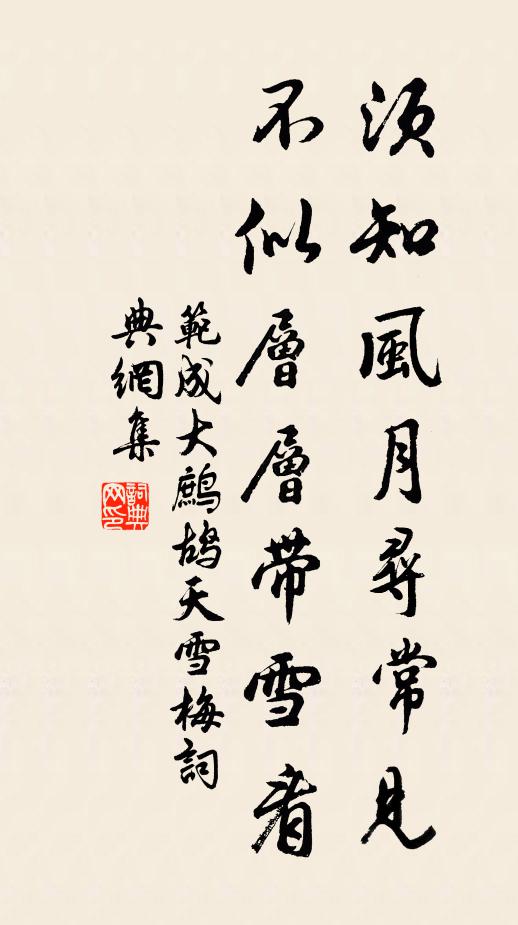 須知風月尋常見
不似層層帶雪看
範成大鷓鴣天雪梅詞
典網集
詞典網印